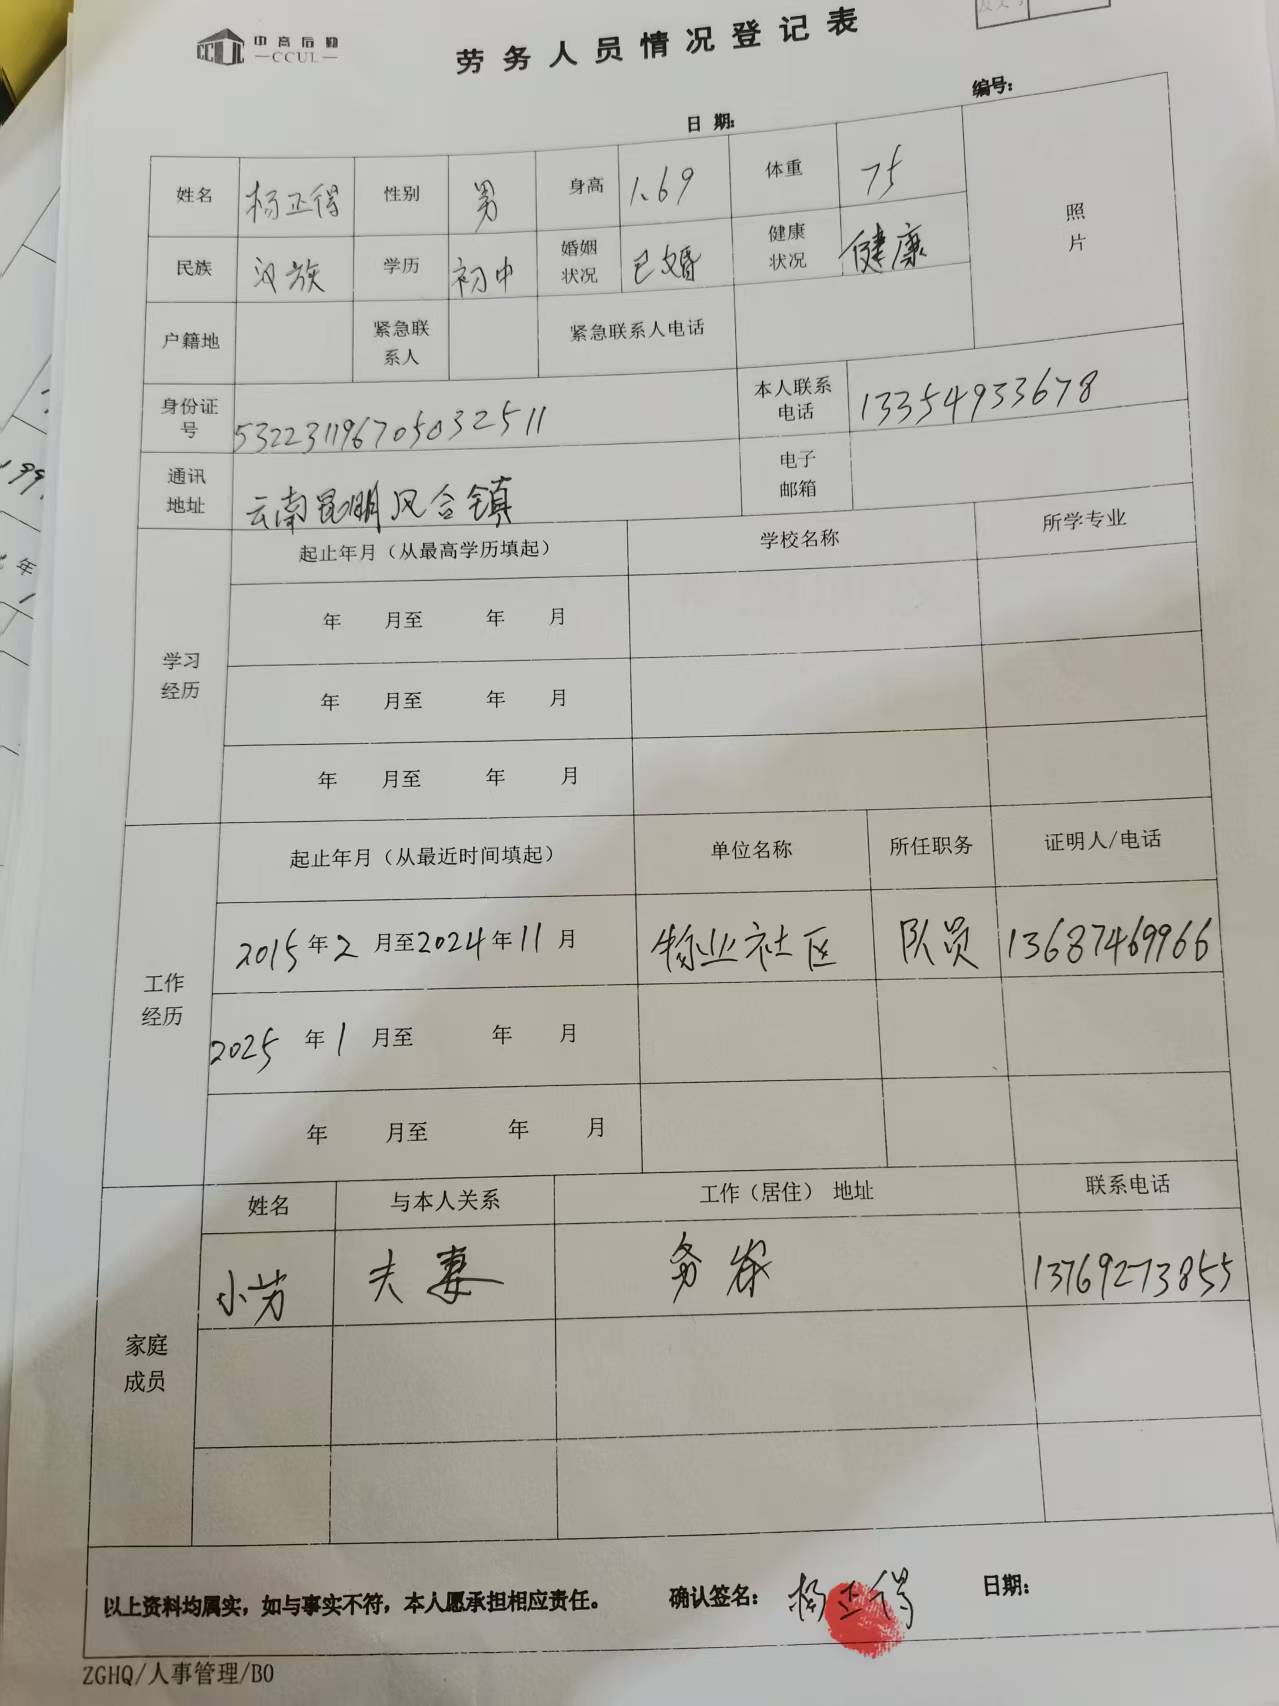 中高后勤
CCUL
劳务人员情况登记表
编号：
日 期：
姓名 杨正得 性别 男 身高 1.69 体重 75 照片
民族 汉族 学历 初中 婚姻状况 已婚 健康状况 健康
户籍地 紧急联系人 紧急联系人电话
身份证号 532231196705032511 本人联系电话 13354933678
通讯地址 云南昆明风合镇 电子邮箱
学习经历 起止年月（从最高学历填起） 学校名称 所学专业
年 月至 年 月
年 月至 年 月
年 月至 年 月
工作经历 起止年月（从最近时间填起） 单位名称 所任职务 证明人/电话
2015年2月至2024年11月 物业社区 队员 13687469966
2025年1月至 年 月
年 月至 年 月
家庭成员 姓名 与本人关系 工作（居住） 地址 联系电话
小芳 夫妻 务农 13769273855
以上资料均属实，如与事实不符，本人愿承担相应责任。 确认签名： 杨正得 日期：
ZGHQ/人事管理/B0